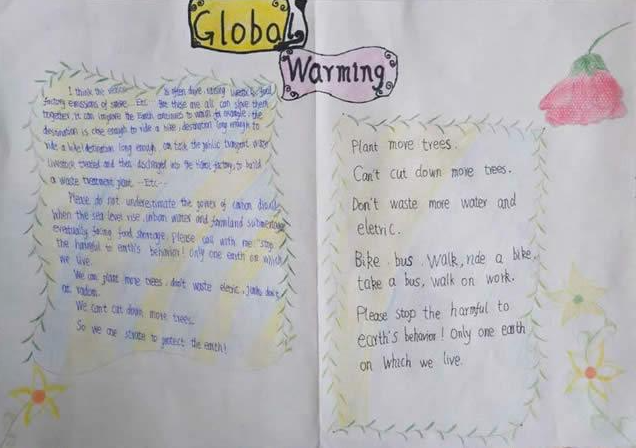 Global
Warming
I think the often drive, raising livestock, and
factory emissions of smoke. Etc. But these we all can solve them
together, it can improve the Earth continues to warm, for example, the
destination is close enough to ride a bike, destination long enough to
ride a bike! destination long enough, can take the public transport,
livestock treated and then discharged into the factory, to build
a waste treatment plant. --Etc--
Please do not underestimate the power of carbon
when the sea level rise, urban water and farmland submerged
eventually facing food shortage. Please call with me "stop
the harmful to earth's behavior! Only one earth on which
we live.
We can plant more trees, don't waste eletric, junk, don't
at random.
We can't cut down more trees.
So we are to protect the earth!
Plant more trees.
Can't cut down more trees.
Don't waste more water and
eletric.
Bike, bus, Walk, ride a bike,
take a bus, walk on work.
Please stop the harmful to
earth's behavior! Only one earth
on which we live.